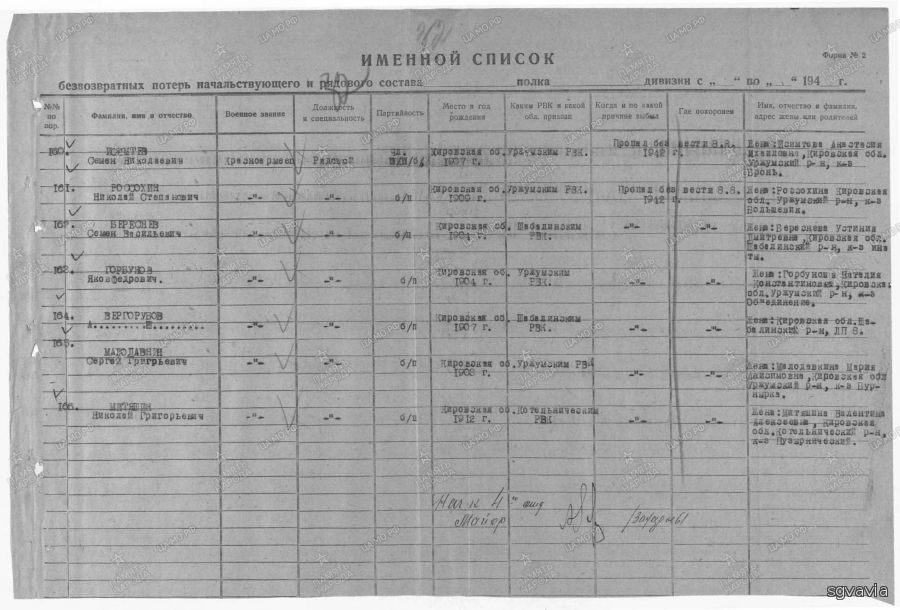 ИМЕННОЙ СПИСОК
Форма № 2
безвозвратных потерь начальствующего и рядового состава полка дивизии с „ “ по „ “ 194 г.
№№ по пор.
Фамилия, имя и отчество
Военное звание
Должность и специальность
Партийность
Место и год рождения
Каким РВК и какой обл. призван
Когда и по какой причине выбыл
Где похоронен
Имя, отчество и фамилия, адрес жены или родителей
160.
Семен Николаевич
Красноармеец
Рядовой
чл.
Кировская об.
1907 г.
Уржумским РВК.
Пропал без вести 8.8.
1942 г.
Михайловна, Кировская обл.
Уржумский р-н, к-з
Бронь.
161. РОССОХИН
Николай Степанович
-"-
-"-
б/п
Кировская об.
1909 г.
Уржумским РВК.
Пропал без вести 8.8.
1942 г.
Жена: Россохина Кировская
обл. Уржумский р-н, к-з
Большевик.
162. БЕРЕСНЕВ
Семен Васильевич
-"-
-"-
б/п
Кировская об.
1904 г.
Шабалинским
РВК.
-"-
-"-
Жена: Береснева Устиния
Дмитревна, Кировская обл.
Шабалинский р-н, к-з
163. ГОРБУНОВ
Яковфедрович.
-"-
-"-
б/п
Кировская об.
1904 г.
Уржумским
РВК.
-"-
-"-
Жена: Горбунова Наталия
Константиновна, Кировская
обл. Уржумский р-н, к-з
Объединение.
164. ВЕРГОРУБОВ
-"-
-"-
б/п
Кировская об.
1907 г.
Шабалинским
РВК.
-"-
-"-
Жена: Кировская обл. Ша-
балинский р-н, ЛП 8.
165.
МАЛОДАВКИН
Сергей Григрьевич
-"-
-"-
б/п
Кировская об.
1908 г.
Уржумским РВК
-"-
-"-
Жена: Малодавкина Мария
Анисимовна, Кировская обл
Уржумский р-н, к-з Бур-
нырка.
166. МИТЯШИН
Николай Григорьевич
-"-
-"-
б/п
Кировская об.
1912 г.
Котельническим
РВК
-"-
-"-
Жена: Митяшина Валентина
Алексеевна, Кировская
обл. Котельнический р-н,
к-з Пузырнический.
Нач-к 4
Майор /Захарьев/
sgvavia